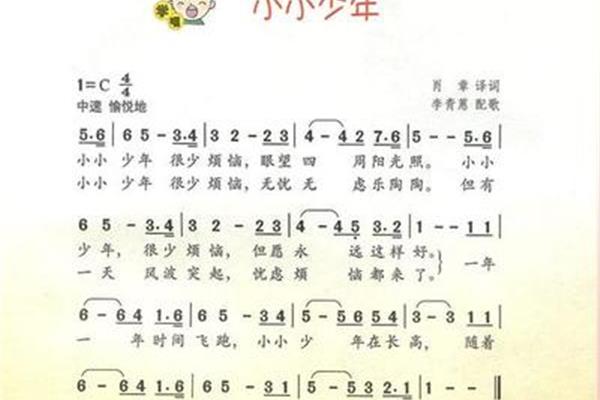 学唱
小小少年
1=C 4/4
肖 章 译词
中速 愉悦地
李青葱 配歌
5.6 | 6 5 - 3.4 | 3 2 - 2 3 | 4 - 4 2 7.6 | 5 - - 5.6 |
小小 少年 很少 烦恼，眼望 四 周阳光照。 小小
小小 少年 很少 烦恼，无忧 无 虑乐陶陶。 但有
6 5 - 3.4 | 3 2 - 2 3 | 4 - 4 5 3.2 | 1 - - 1 1 |
少年， 很少 烦恼， 但愿 永 远这样 好。} 一年
一天 风波 突起， 忧虑 烦 恼都来 了。
6 - 6 4 1.6 | 6 5 - 3 4 | 5 - 5 6 5 4 | 3 - 3 1 1 |
一 年时间 飞跑， 小小 少 年在长 高， 随着
6 - 6 4 1.6 | 6 5 - 3 1 | 5 - 5 3 2.1 | 1 - - ‖